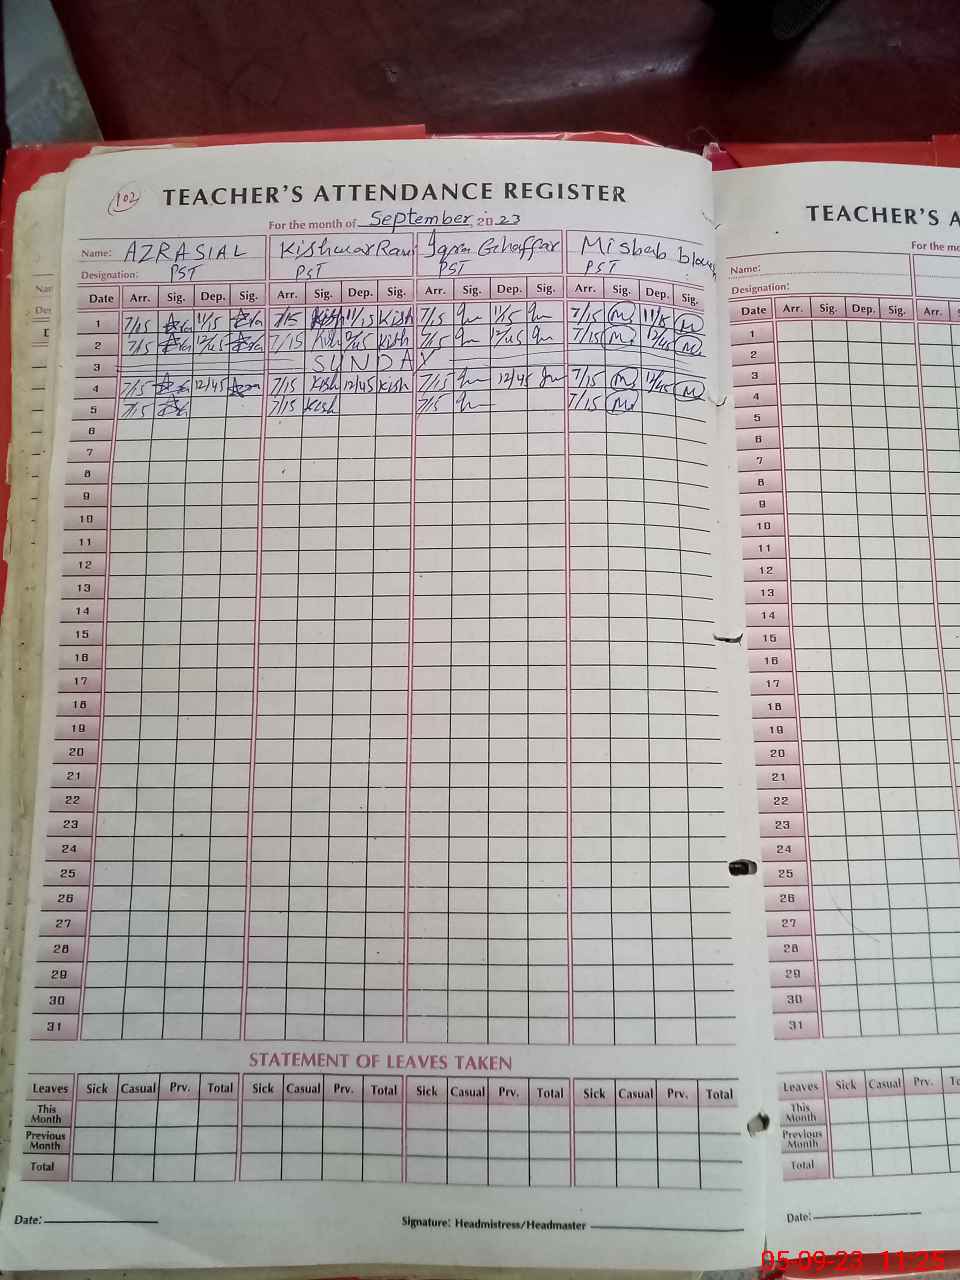 102
TEACHER'S ATTENDANCE REGISTER
For the month of September, 2023
Name: AZRA SIAL Kishwar Rani Iqra Ghaffar Misbah
Designation: PST PST PST PST
Date Arr. Sig. Dep. Sig. Arr. Sig. Dep. Sig. Arr. Sig. Dep. Sig. Arr. Sig. Dep. Sig.
1 7/15 11/15 7/15 Kish 11/15 Kish 7/15 11/15 7/15 M 11/15 M
2 7/15 12/45 7/15 Kish 12/45 Kish 7/15 12/45 7/15 M 12/45 M
3 SUNDAY
4 7/15 12/45 7/15 Kish 12/45 Kish 7/15 12/45 7/15 M 12/45 M
5 7/15 7/15 Kish 7/15 7/15 M
6
7
8
9
10
11
12
13
14
15
16
17
18
19
20
21
22
23
24
25
26
27
28
29
30
31
STATEMENT OF LEAVES TAKEN
Leaves Sick Casual Prv. Total Sick Casual Prv. Total Sick Casual Prv. Total Sick Casual Prv. Total
This Month
Previous Month
Total
Date: Signature: Headmistress/Headmaster
TEACHER'S A
For the mo
Name:
Designation:
Date Arr. Sig. Dep. Sig. Arr.
1
2
3
4
5
6
7
8
9
10
11
12
13
14
15
16
17
18
19
20
21
22
23
24
25
26
27
28
29
30
31
Leaves Sick Casual Prv. To
This Month
Previous Month
Total
Date:
05-09-23 11:25